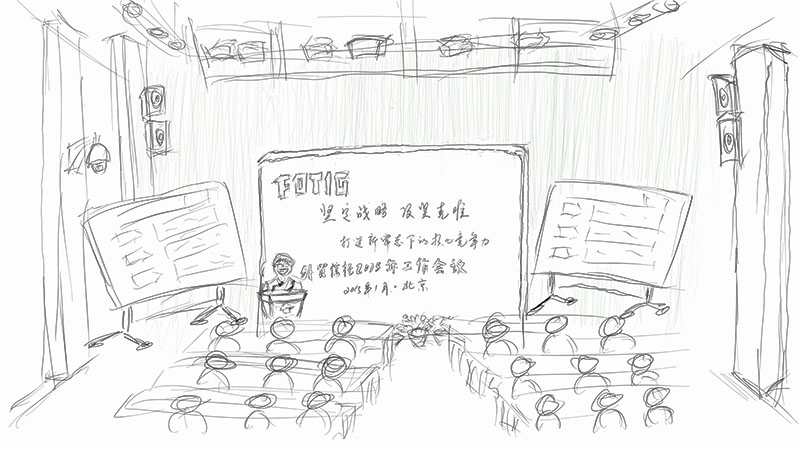 FOTIC
坚定战略 攻坚克难
打造新常态下的核心竞争力
外贸信托2015年工作会议
2015年1月·北京